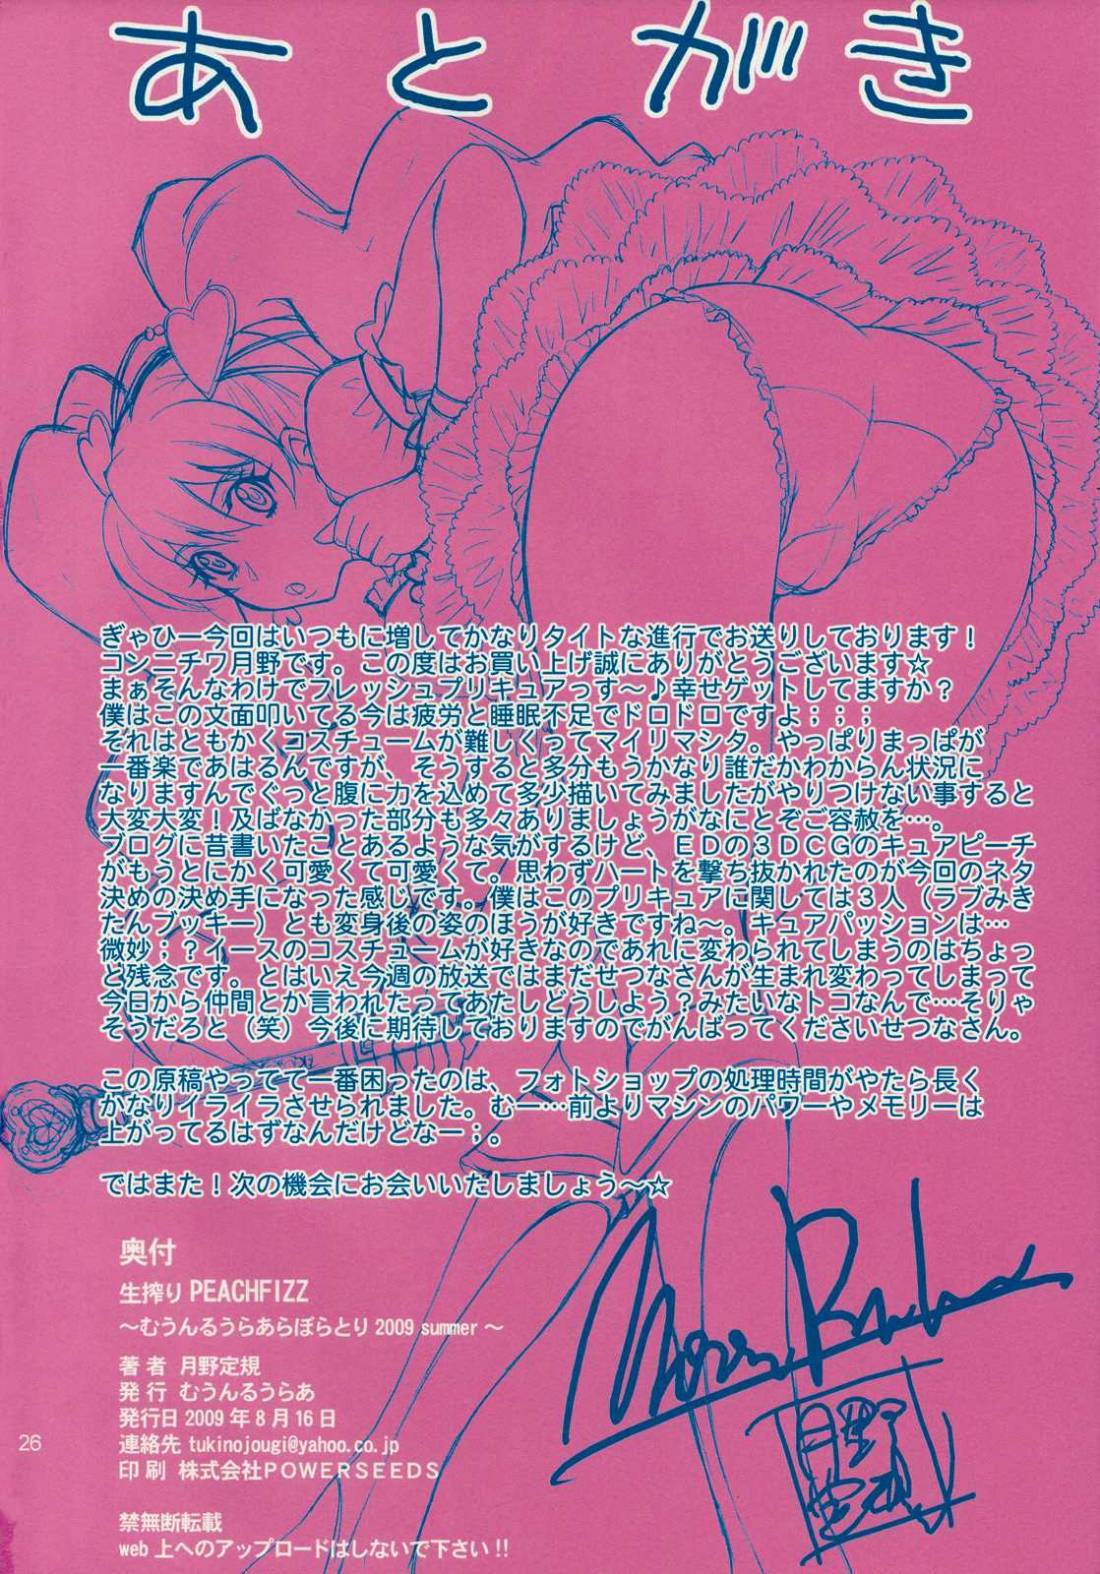 あとがき
ぎゃひー今回はいつもに増してかなりタイトな進行でお送りしております！
コンニチワ月野です。この度はお買い上げ誠にありがとうございます☆
まぁそんなわけでフレッシュプリキュアっす～♪幸せゲットしてますか？
僕はこの文面叩いてる今は疲労と睡眠不足でドロドロですよ；；；
それはともかくコスチュームが難しくってマイリマシタ。やっぱりまっぱが
一番楽であはるんですが、そうすると多分もうかなり誰だかわからん状況に
なりますんでぐっと腹に力を込めて多少描いてみましたがやりつけない事すると
大変大変！及ばなかった部分も多々ありましょうがなにとぞご容赦を…。
ブログに昔書いたことあるような気がするけど、ＥＤの３ＤＣＧのキュアピーチ
がもうとにかく可愛くて可愛くて。思わずハートを撃ち抜かれたのが今回のネタ
決めの決め手になった感じです。僕はこのプリキュアに関しては３人（ラブみき
たんブッキー）とも変身後の姿のほうが好きですね～。キュアパッションは…
微妙；？イースのコスチュームが好きなのであれに変わられてしまうのはちょっ
と残念です。とはいえ今週の放送ではまだせつなさんが生まれ変わってしまって
今日から仲間とか言われたってあたしどうしよう？みたいなトコなんで…そりゃ
そうだろと（笑）今後に期待しておりますのでがんばってくださいせつなさん。
この原稿やってて一番困ったのは、フォトショップの処理時間がやたら長く
かなりイライラさせられました。むー…前よりマシンのパワーやメモリーは
上がってるはずなんだけどなー；。
ではまた！次の機会にお会いいたしましょう～☆
奥付
生搾り PEACHFIZZ
～むうんるうらあらぼらとり 2009 summer～
著者 月野定規
発行 むうんるうらあ
発行日 2009年8月16日
連絡先 tukinojougi@yahoo.co.jp
印刷 株式会社POWERSEEDS
26
禁無断転載
web上へのアップロードはしないで下さい!!